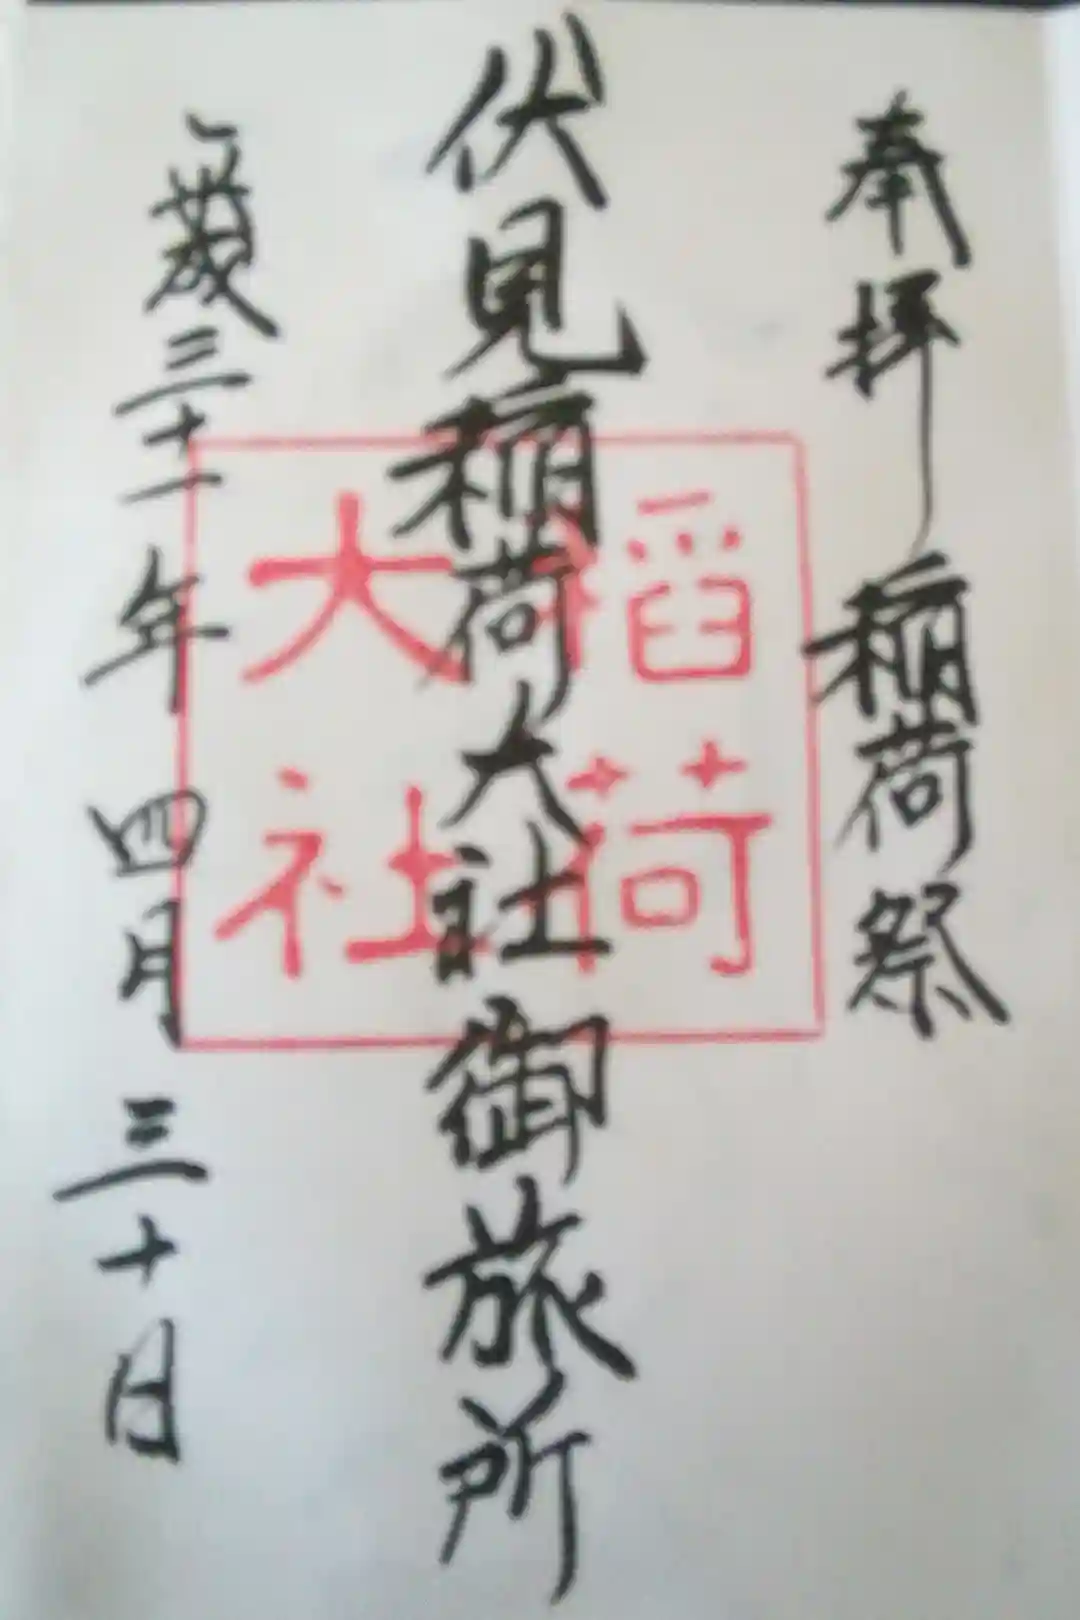 奉拝 稲荷祭
伏見稲荷大社御旅所
稲荷
大社
歳三十一年 四月 三十日